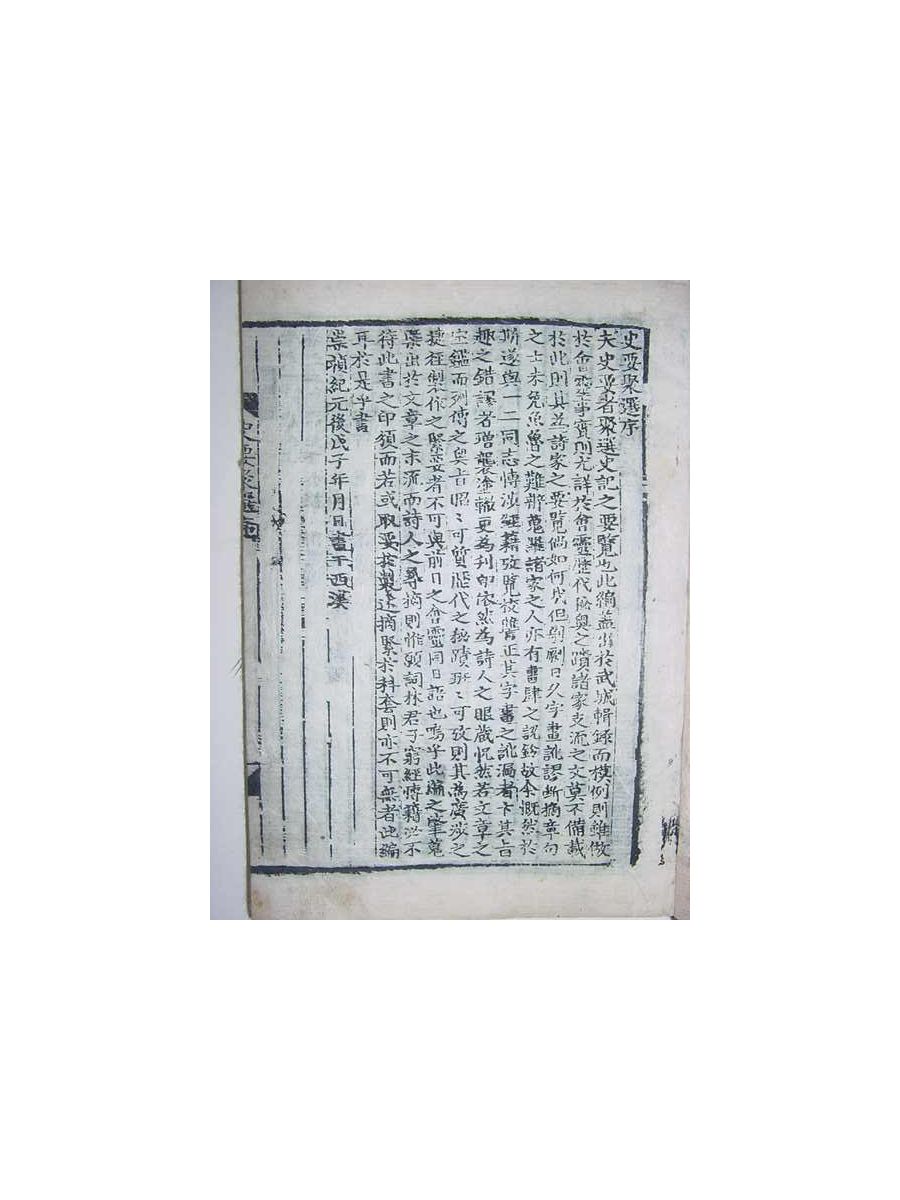 史要聚選序
夫史要者聚選史記之要覽也此編盖出於武城輯錄而模例則雖倣
於會靈事實則尤詳於會靈歷代廢興之蹟諸家支流之文莫不備載
於此則其並諸家之要覽倘如何哉但剞劂日久字畫訛謬斷摘章句
之士未免魚魯之難辨蒐羅諸家之人亦有書肆之訛舛故余慨然於
斯遂與一二同志博涉經籍攷覽校讐正其字畫之訛漏者卞其旨
趣之錯謬者增襲塗轍更為刊印依然為詩人之眼藏怳然若文章之
宝鑑而列傳之奧旨昭〻可質歷代之松蹟班〻可攷則其為廣涉之
捷徑製作之緊要者不可與前日之會靈同日語也嗚乎此編之肇蒐
槩出於文章之末流而詩人之尋摘則惟願詞林君子窮經博籍必不
待此書之印須而若或取要於製述摘緊於科套則亦不可無者此編
耳於是乎書
崇禎紀元後戊子年月日書于西溪
史要聚選 序